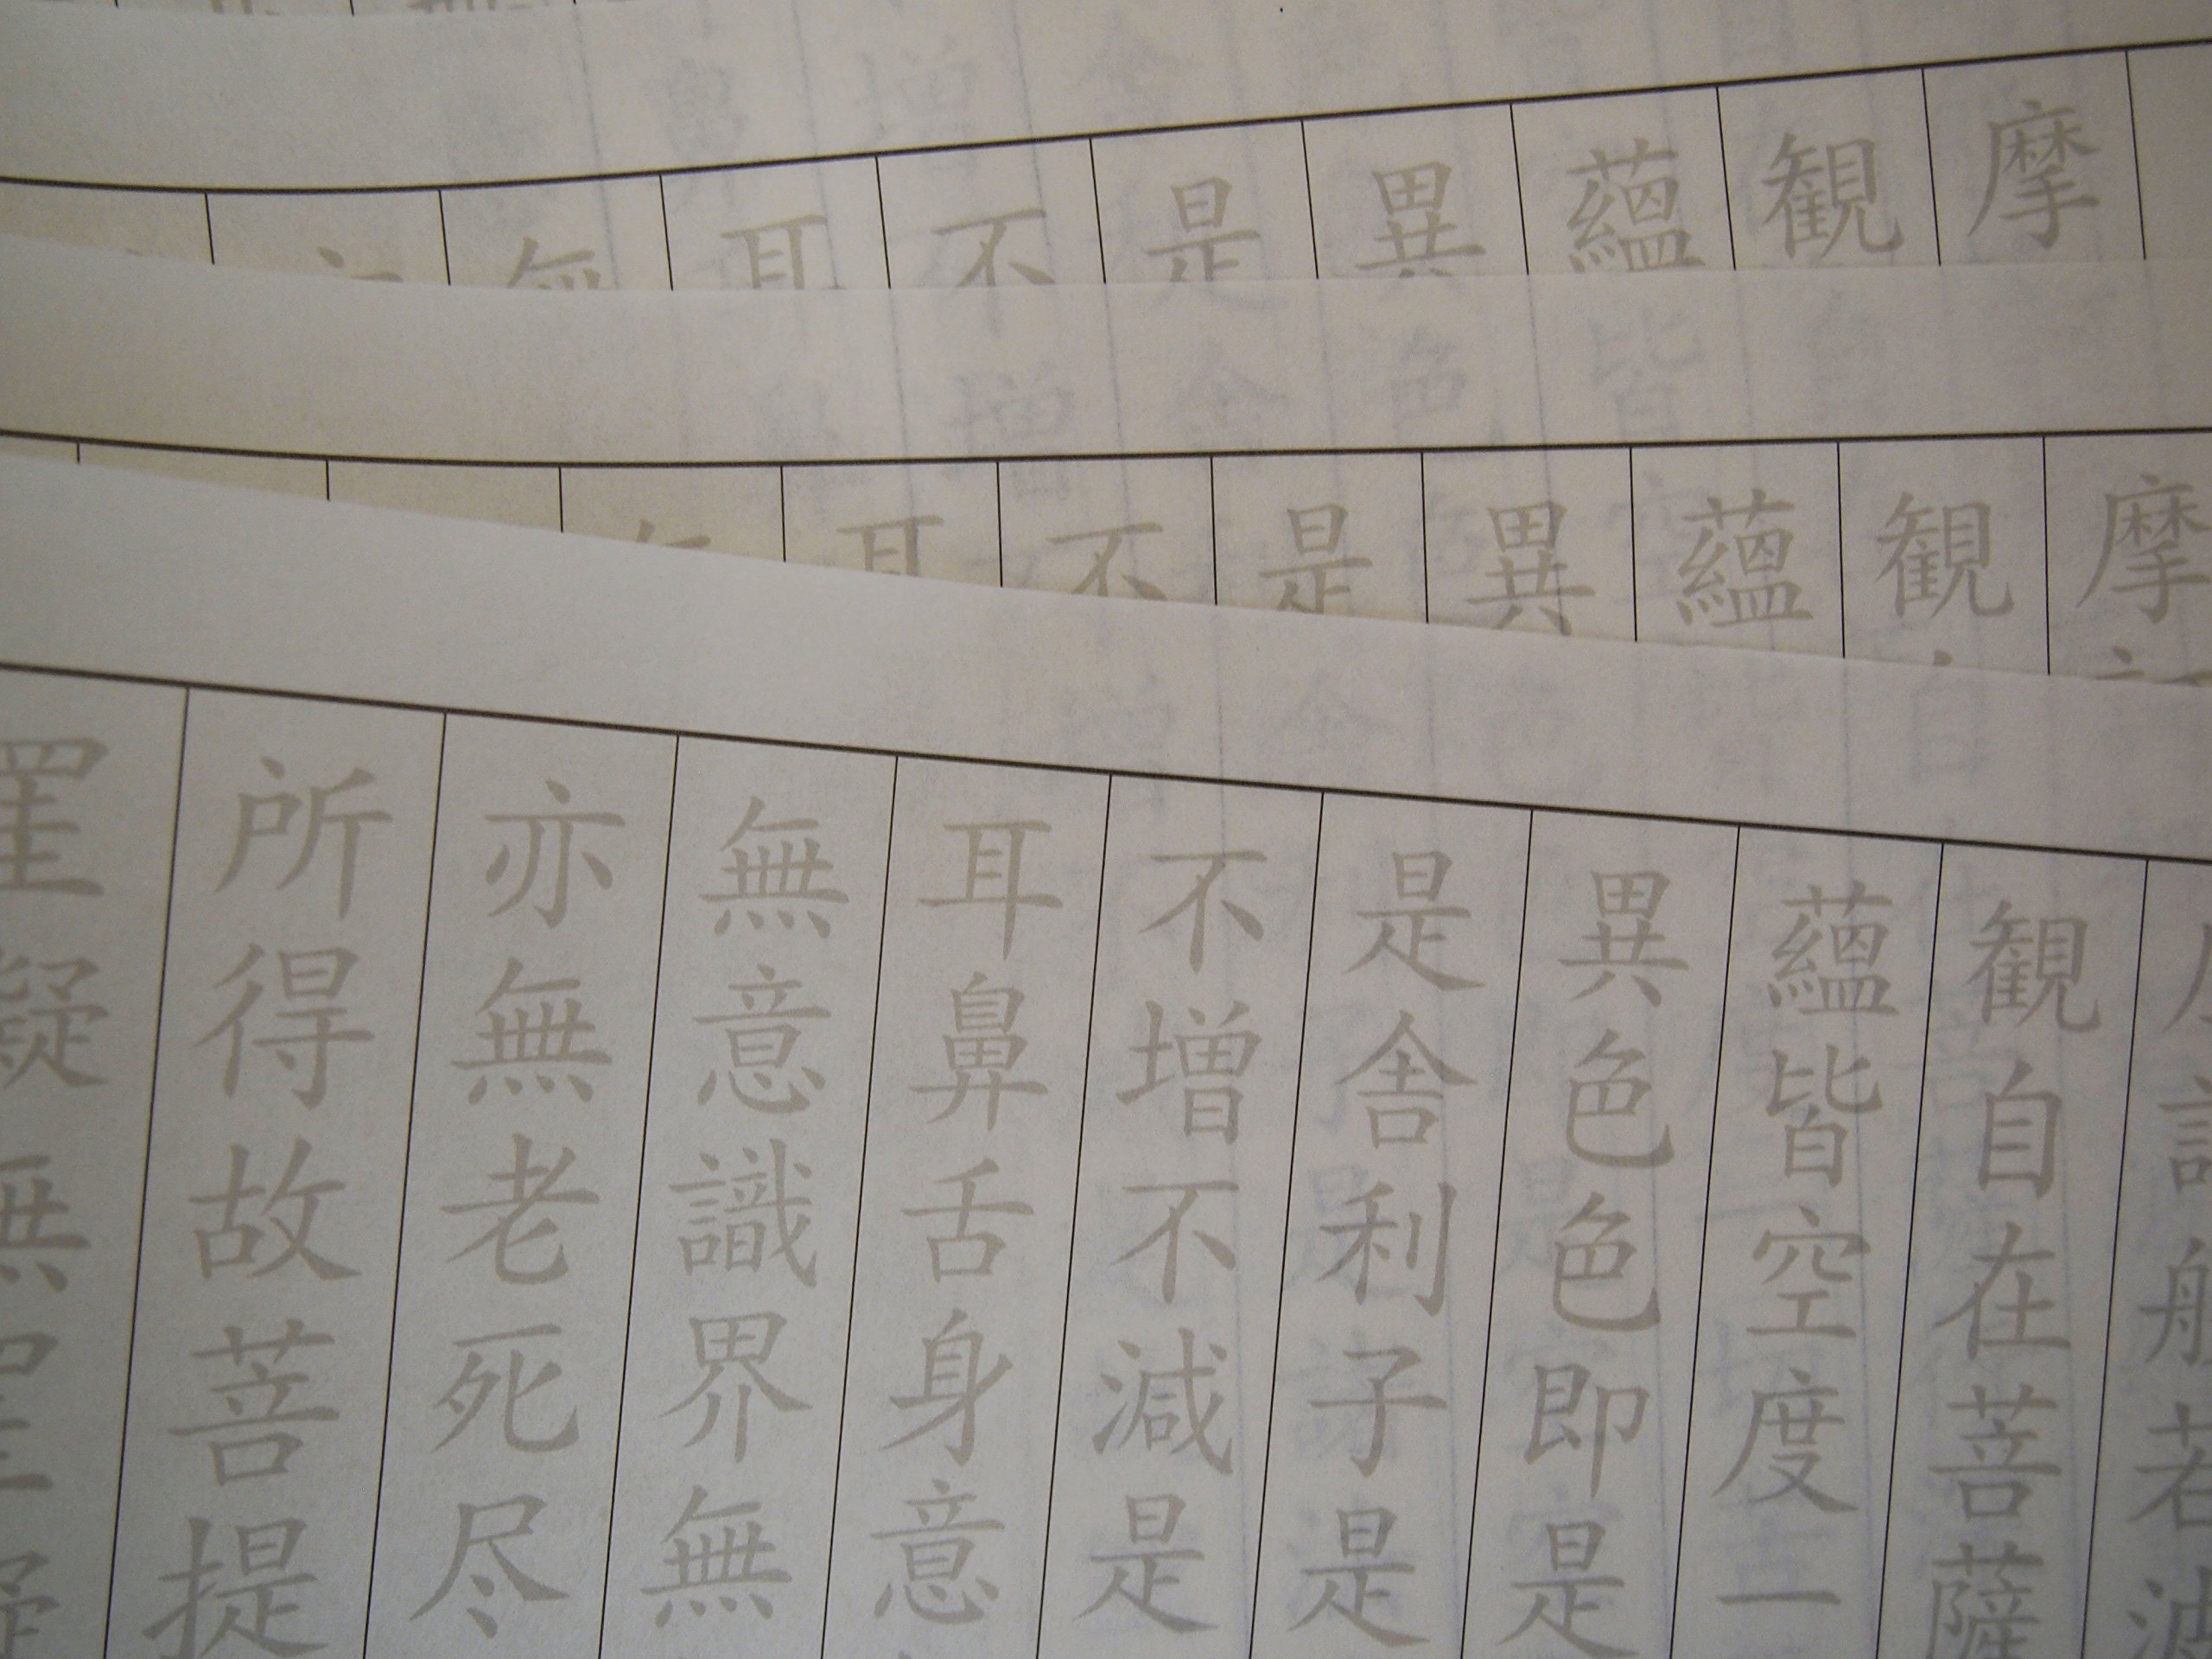 摩
観
蘊
異
是
不
耳
無
摩
観
蘊
異
是
不
耳
訶般若波
観自在菩薩
蘊皆空度一
異色色即是
是舎利子是
不増不減是
耳鼻舌身意
無意識界無
亦無老死尽
所得故菩提
罣礙無罣礙